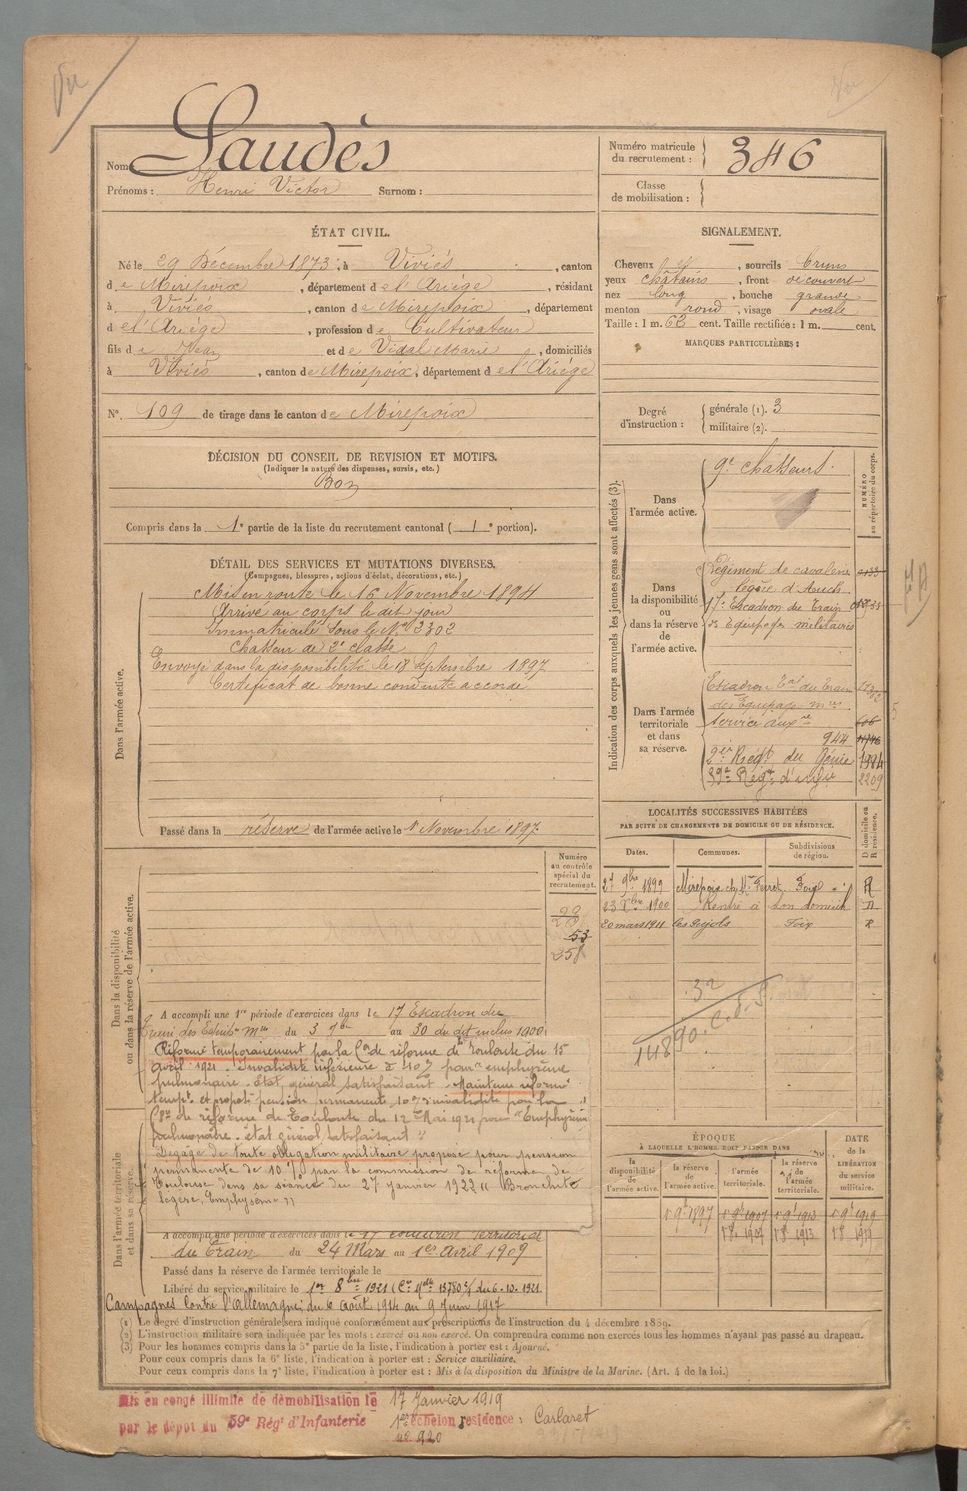 Nom Laudès
Prénoms : Henri Victor Surnom :
Numéro matricule du recrutement : 346
Classe de mobilisation :
ÉTAT CIVIL.
Né le 29 Décembre 1873, à Viviès, canton
de Mirepoix, département de l'Ariège, résidant
à Viviès, canton de Mirepoix, département
de l'Ariège, profession de Cultivateur
fils de Jean et de Vidal Marie, domiciliés
à Viviès, canton de Mirepoix, département de l'Ariège
N° 109 de tirage dans le canton de Mirepoix
SIGNALEMENT.
Cheveux, sourcils bruns
yeux châtains, front découvert
nez long, bouche grande
menton rond, visage ovale
Taille : 1 m. 62 cent. Taille rectifiée : 1 m. cent.
MARQUES PARTICULIÈRES :
Degré d'instruction : générale (1). 3
militaire (2).
DÉCISION DU CONSEIL DE REVISION ET MOTIFS.
(Indiquer la nature des dispenses, sursis, etc.)
Bon
Compris dans la 1e partie de la liste du recrutement cantonal ( 1e portion).
DÉTAIL DES SERVICES ET MUTATIONS DIVERSES.
(Campagnes, blessures, actions d'éclat, décorations, etc.)
Dans l'armée active.
Mis en route le 16 Novembre 1894
Arrivé au corps le dit jour
Immatriculé sous le N° 3302
Chasseur de 2e classe
Envoyé dans la disponibilité le 18 Septembre 1897
Certificat de bonne conduite accordé
Passé dans la réserve de l'armée active le 1er Novembre 1897
Indication des corps auxquels les jeunes gens sont affectés (3).
NUMÉRO au répertoire du corps.
Dans l'armée active.
9e Chasseurs.
Dans la disponibilité ou dans la réserve de l'armée active.
Régiment de cavalerie
légère d'Auch
17e Escadron du Train
des Equipages militaires
Dans l'armée territoriale et dans sa réserve.
Escadron Tal du Train
des Equipages mres
Service auxre
944
2e Régt du Génie 1984
59e Régt d'infie 2209
LOCALITÉS SUCCESSIVES HABITÉES
PAR SUITE DE CHANGEMENTS DE DOMICILE OU DE RÉSIDENCE.
Dates. Communes. Subdivisions de région. D domicile ou R résidence.
27 9bre 1899 Mirepoix ch Mr Ferret Foix R
23 Xbre 1900 Rentré à son domicile D
20 mars 1911 Les Pujols Foix R
Dans la disponibilité ou dans la réserve de l'armée active.
Numéro au contrôle spécial du recrutement.
53
A accompli une 1re période d'exercices dans le 17 Escadron du
Train des Equip. Mres du 3 7bre au 30 du dit inclus 1900
Réformé temporairement par la Con de réforme de Toulouse du 15
avril 1921. Invalidité inférieure à 10% pour emphysème
pulmonaire. Etat général satisfaisant. Maintenu réformé
tempre et propon pension permanente 10% d'invalidité par la
Con de réforme de Toulouse du 12 Mai 1921 pour "Emphysème
pulmonaire. état général satisfaisant"
Dégagé de toute obligation militaire proposé pour pension
permanente de 10% par la commission de réforme de
Toulouse dans sa séance du 27 janvier 1922 "Bronchite
légère, Emphysème"
32
14890. C.d.S.
Dans l'armée territoriale et dans sa réserve.
A accompli une période d'exercices dans le 17 escadron territorial
du Train du 24 Mars au 1er Avril 1909
Passé dans la réserve de l'armée territoriale le
Libéré du service militaire le 1er 8bre 1921 (Cre Mlle 13780 2/1 du 6.10.1921
Campagnes Contre l'Allemagne; du 6 août 1914 au 9 Juin 1917
ÉPOQUE
À LAQUELLE L'HOMME DOIT PASSER DANS
la disponibilité de l'armée active. la réserve de l'armée active. l'armée territoriale. la réserve de l'armée territoriale.
DATE de la LIBÉRATION du service militaire.
1er 9bre 1897 1er 9bre 1907 1er 9bre 1913 1er 9bre 1919
(1) Le degré d'instruction générale sera indiqué conformément aux prescriptions de l'instruction du 4 décembre 1889.
(2) L'instruction militaire sera indiquée par les mots : exercé ou non exercé. On comprendra comme non exercés tous les hommes n'ayant pas passé au drapeau.
(3) Pour les hommes compris dans la 5e partie de la liste, l'indication à porter est : Ajourné.
Pour ceux compris dans la 6e liste, l'indication à porter est : Service auxiliaire.
Pour ceux compris dans la 7e liste, l'indication à porter est : Mis à la disposition du Ministre de la Marine. (Art. 4 de la loi.)
Mis en congé illimité de démobilisation le 17 Janvier 1919
par le dépôt du 59e Régt d'Infanterie 1er échelon résidence : Carlaret
no 920